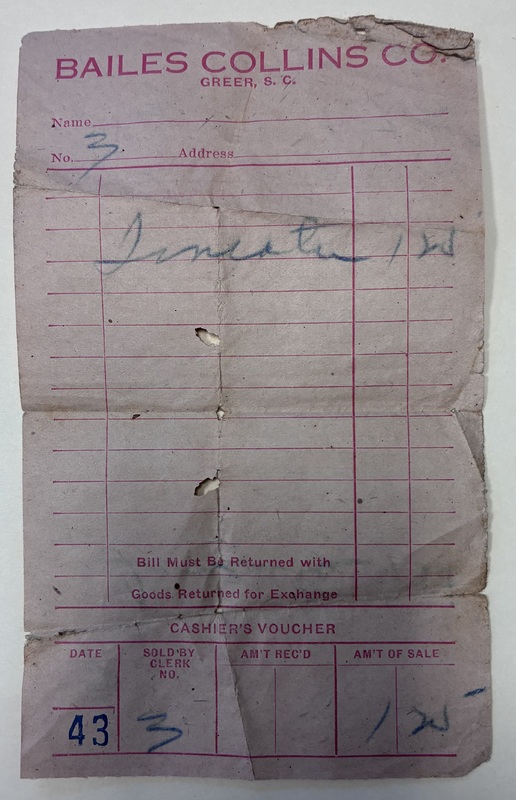 BAILES COLLINS CO.
GREER, S. C.
Name
No. 3 Address
1 25
Bill Must Be Returned with
Goods Returned for Exchange
CASHIER'S VOUCHER
DATE SOLD BY CLERK NO. AM'T REC'D AM'T OF SALE
43 3 1 25